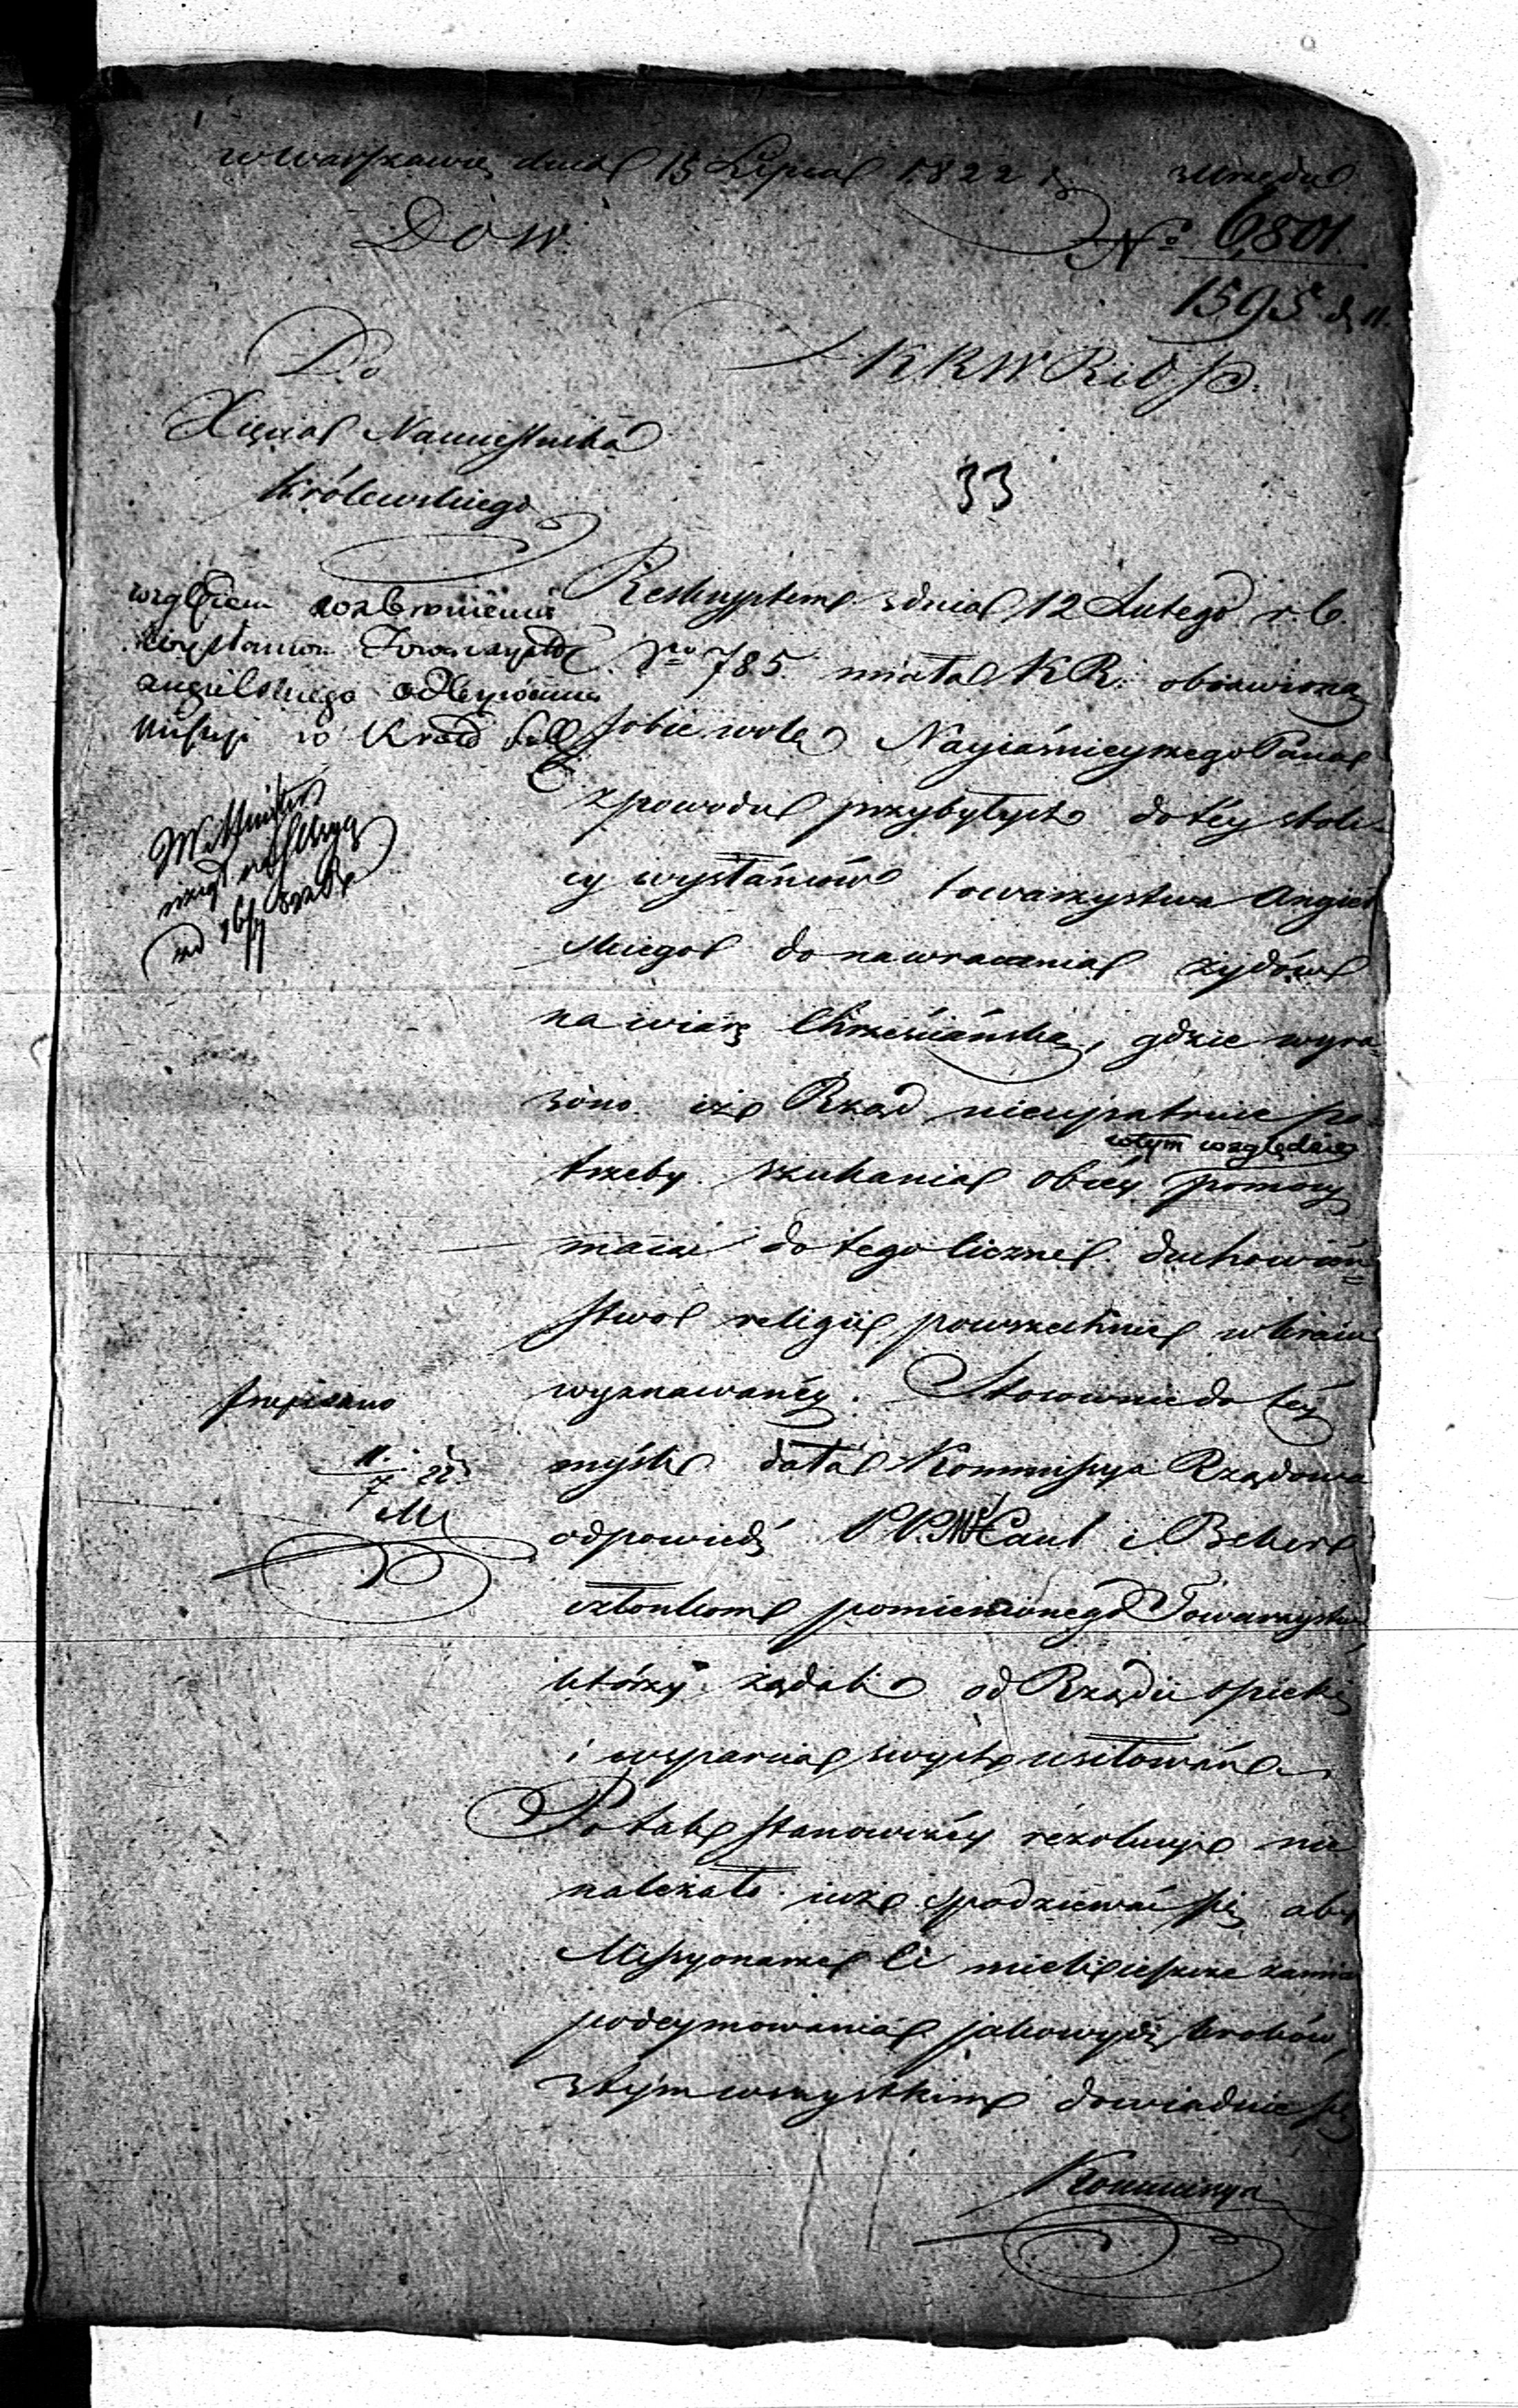 w Warszawie dnia 15 Lipca 1822 r.
z Urzędu
DOW.
No 6801.
1595 d. 11.
Do
KRWRiOP.
Xięcia Namiestnika
Królewskiego
33
względem wzbronienia
wysłańcom Towarzystwa
angielskiego odbywania
Missyi w Kraju
przepisano
11.
7 22
Reskryptem z dnia 12 Lutego r. b.
Nro 785. miała KR. obiawioną
sobie wolę Nayiaśnieyszego Pana
z powodu przybyłych do téy stoli-
cy wysłańców towarzystwa Angiel
skiego do nawracania żydów
na wiarę Chrześciańską, gdzie wyra-
żono iż Rząd nieupatruie po-
w tym względzie
trzeby szukania obcéy pomocy
maiąc do tego liczne duchowień-
stwo religii powszechnie w kraiu
wyznawanéy. Stosownie do téy
myśli dała Kommissya Rządowa
odpowiedź PP. McCaul i Beker
członkom pomienionego Towarzystwa,
którzy żądali od Rządu opieki
i wsparcia swych usiłowań.
Po tak stanowczéy rezolucyi nie
należało iuż spodziewać się aby
Missyonarze Ci mieli ieszcze zamiar
podeymowania jakowych kroków,
z tym wszystkim dowiaduie się
Kommissya